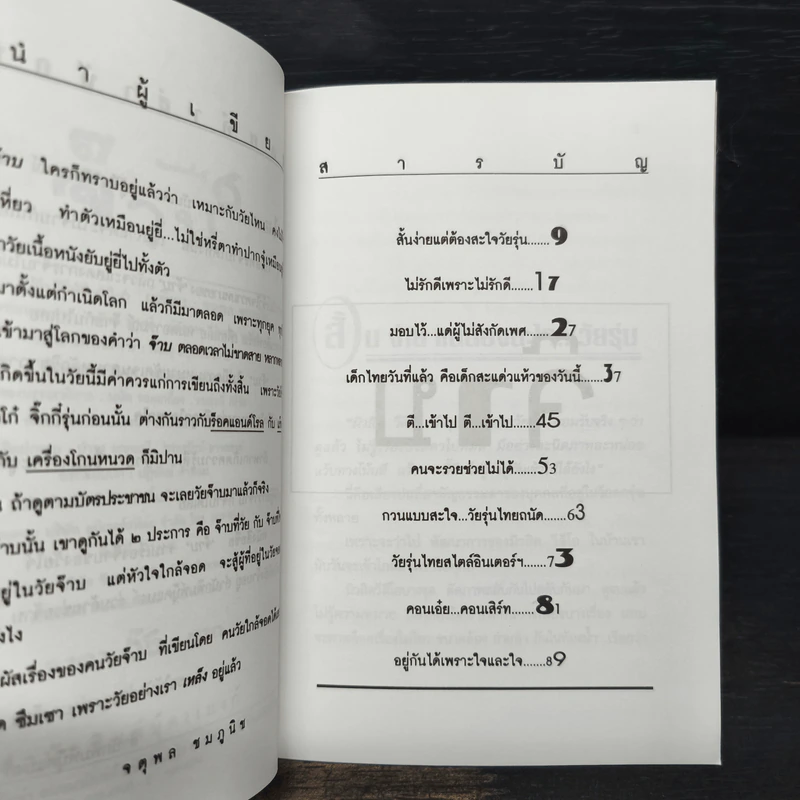 นำผู้เขีย
จ๊าบ ใครก็ทราบอยู่แล้วว่า เหมาะกับวัยไหน
เหี่ยว ทำตัวเหมือนยู่ยี่...ไม่ใช่หรี่ตาทำปากจู๋เหมือน
วัยเนื้อหนังยับยู่ยี่ไปทั้งตัว
มาตั้งแต่กำเนิดโลก แล้วก็มีมาตลอด เพราะทุกยุค
เข้ามาสู่โลกของคำว่า จ๊าบ ตลอดเวลาไม่ขาดสาย
กิดขึ้นในวัยนี้มีค่าควรแก่การเขียนถึงทั้งสิ้น
โก๋ จิ๊กกี๋รุ่นก่อนนั้น ต่างกันราวกับร็อคแอนด์โรล กับ
กับ เครื่องโกนหนวด ก็มิปาน
ถ้าดูตามบัตรประชาชน จะเลยวัยจ๊าบมาแล้วก็จริง
าบนั้น เขาดูกันได้ ๒ ประการ คือ จ๊าบที่วัย กับ จ๊าบที่
อยู่ในวัยจ๊าบ แต่หัวใจใกล้จอด จะสู้ผู้ที่อยู่ใน
ังไง
ผัสเรื่องของคนวัยจ๊าบ ที่เขียนโดย คนวัยใกล้จอด
ซึมเซา เพราะวัยอย่างเรา เหลิ่ง อยู่แล้ว
จตุพล ชมภูนิช
สารบัญ
สั้นง่ายแต่ต้องสะใจวัยรุ่น.......9
ไม่รักดีเพราะไม่รักดี.......17
มอบไว้...แด่ผู้ไม่สังกัดเพศ.......27
เด็กไทยวันที่แล้ว คือเด็กสะแด่วแห้วของวันนี้.......37
ตี...เข้าไป ตี...เข้าไป.......45
คนจะรวยช่วยไม่ได้.......53
กวนแบบสะใจ...วัยรุ่นไทยถนัด.......63
วัยรุ่นไทยสไตล์อินเตอร์ฯ.......73
คอนเอ๋ย...คอนเสิร์ท.......81
อยู่กันได้เพราะใจและใจ.......89